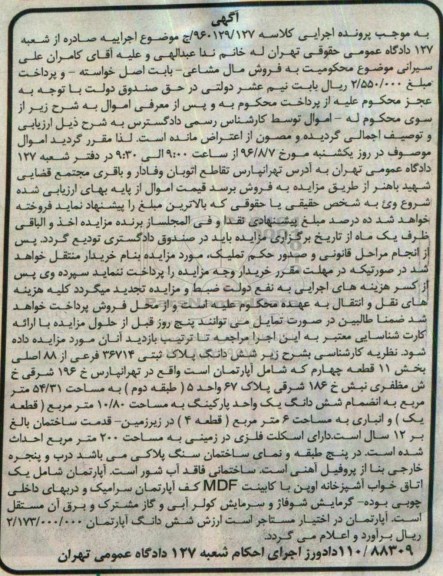 آگهی
به موجب پرونده اجرایی کلاسه ۹۶۰۱۲۹/۱۲۷/ج موضوع اجراییه صادره از شعبه
۱۲۷ دادگاه عمومی حقوقی تهران له خانم ندا عبدالهی و علیه آقای کامران علی
سیرانی موضوع محکومیت به فروش مال مشاعی- بابت اصل خواسته - و پرداخت
مبلغ ۲/۵۵۰/۰۰۰ ریال بابت نیم عشر دولتی در حق صندوق دولت با توجه به
عجز محکوم علیه از پرداخت محکوم به و پس از معرفی اموال به شرح زیر از
سوی محکوم له - اموال توسط کارشناس رسمی دادگسترس به شرح ذیل ارزیابی
و توصیف اجمالی گردیده و مصون از اعتراض مانده است. لذا مقرر گردید اموال
موصوف در روز یکشنبه مورخ ۹۶/۸/۷ از ساعت ۹:۰۰ الی ۹:۳۰ در دفتر شعبه ۱۲۷
دادگاه عمومی تهران به آدرس تهرانپارس تقاطع اتوبان وفادار و باقری مجتمع قضایی
شهید باهنر از طریق مزایده به فروش برسد قیمت اموال از پایه بهای ارزیابی شده
شروع و به شخص حقیقی یا حقوقی که بالاترین مبلغ را پیشنهاد نماید فروخته
خواهد شد ده درصد مبلغ پیشنهادی نقدا و فی المجلس از برنده مزایده اخذ و الباقی
ظرف یک ماه از تاریخ برگزاری مزایده باید در صندوق دادگستری تودیع گردد. پس
از انجام مراحل قانونی و صدور حکم تملیک، مورد مزایده بنام خریدار منتقل خواهد
شد در صورتیکه در مهلت مقرر خریدار وجه مزایده را پرداخت ننماید سپرده وی پس
از کسر هزینه های اجرایی به نفع دولت ضبط و مزایده تجدید میگردد کلیه هزینه
های نقل و انتقال به عهده محکوم علیه است و از محل فروش پرداخت خواهد
شد ضمنا طالبین در صورت تمایل می توانند پنج روز قبل از حلول مزایده با ارائه
کارت شناسایی معتبر به این اجرا مراجعه تا ترتیب بازدید آنان مورد مزایده داده
شود. نظریه کارشناسی بشرح زیر شش دانگ پلاک ثبتی ۳۶۷۱۴ فرعی از ۸۸ اصلی
بخش ۱۱ قطعه چهارم که شامل آپارتمان است واقع در تهرانپارس خ ۱۹۶ شرقی خ
ش مظفری نبش خ ۱۸۶ شرقی پلاک ۶۷ واحد ۵ ( طبقه دوم ) به مساحت ۵۴/۳۱ متر
مربع به انضمام شش دانگ یک واحد پارکینگ به مساحت ۱۰/۸۰ متر مربع ( قطعه
یک ) و انباری به مساحت ۶ متر مربع ( قطعه ۴ ) در زیرزمین- قدمت ساختمان بالغ
بر ۱۲ سال است.دارای اسکلت فلزی در زمینی به مساحت ۲۰۰ متر مربع احداث
شده است. در پنج طبقه و نمای ساختمان سنگ پلاکی می باشد درب و پنجره
خارجی بنا از پروفیل آهنی است. ساختمانی فاقد آب شور است. آپارتمان شامل یک
اتاق خواب آشپزخانه اوپن با کابینت MDF کف آپارتمان سرامیک و دربهای داخلی
چوبی بوده- گرمایش شوفاژ و سرمایش کولر آبی و گاز مشترک و برق آن مستقل
است. آپارتمان در اختیار مستاجر است ارزش شش دانگ آپارتمان ۲/۱۷۳/۰۰۰/۰۰۰
ریال برآورد و اعلام می گردد.
۱۱۰/۸۸۳۰۹ دادورز اجرای احکام شعبه ۱۲۷ دادگاه عمومی تهران